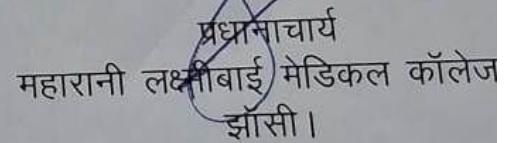 प्रधानाचार्य
महारानी लक्ष्मीबाई मेडिकल कॉलेज
झॉसी।